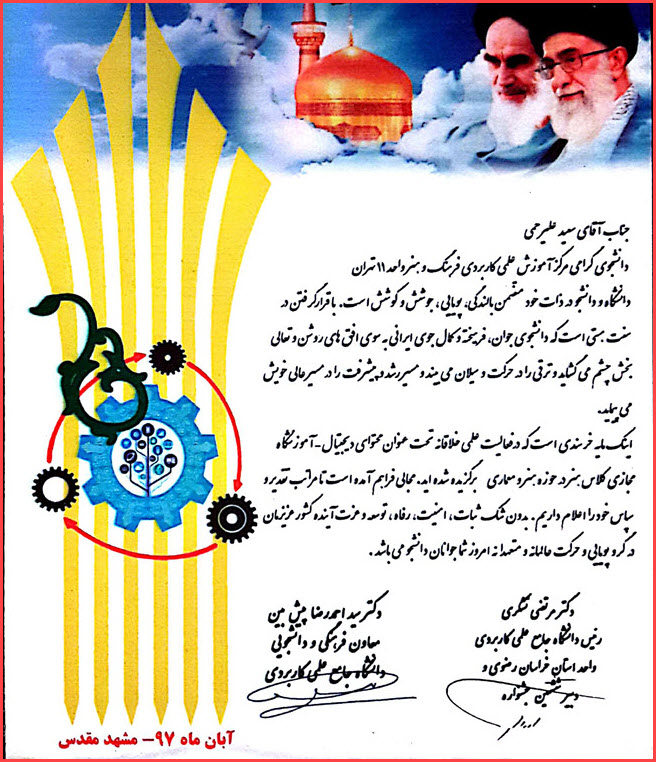 جناب آقای سعید علیرحمی
دانشجوی گرامی مرکز آموزش علمی کاربردی فرهنگ و هنر واحد ۱۱ تهران
دانشگاه و دانشجو در ذات خود متضمن بالندگی، پویایی، جوشش و کوشش است. با قرار گرفتن در
سنت بستی است که دانشجوی جوان، فرهیخته و کمال جوی ایرانی به سوی افق های روشن و تعالی
بخش چشم می گشاید و ترقی را در حرکت و سیلان می بیند و مسیر رشد و پیشرفت را در مسیر عالی خویش
می پیماید.
اینک مایه خرسندی است که در فعالیت علمی خلاقانه تحت عنوان محتوای دیجیتال - آموزشگاه
مجازی کلاس هنر در حوزه هنر و معماری برگزیده شده اید. مجالی فراهم آمده است تا مراتب تقدیر و
سپاس خود را اعلام داریم. بدون شک ثبات، امنیت، رفاه، توسعه و عزت آینده کشور عزیزمان
در گرو پویایی و حرکت عالمانه و متعهدانه امروز شما جوانان دانشجو می باشد.
دکتر مرتضی لشکری
رئیس دانشگاه جامع علمی کاربردی
واحد استان خراسان رضوی و
دبیر ششمین جشنواره
دکتر سید احمدرضا پیش بین
معاون فرهنگی و دانشجویی
دانشگاه جامع علمی کاربردی
آبان ماه ۹۷- مشهد مقدس